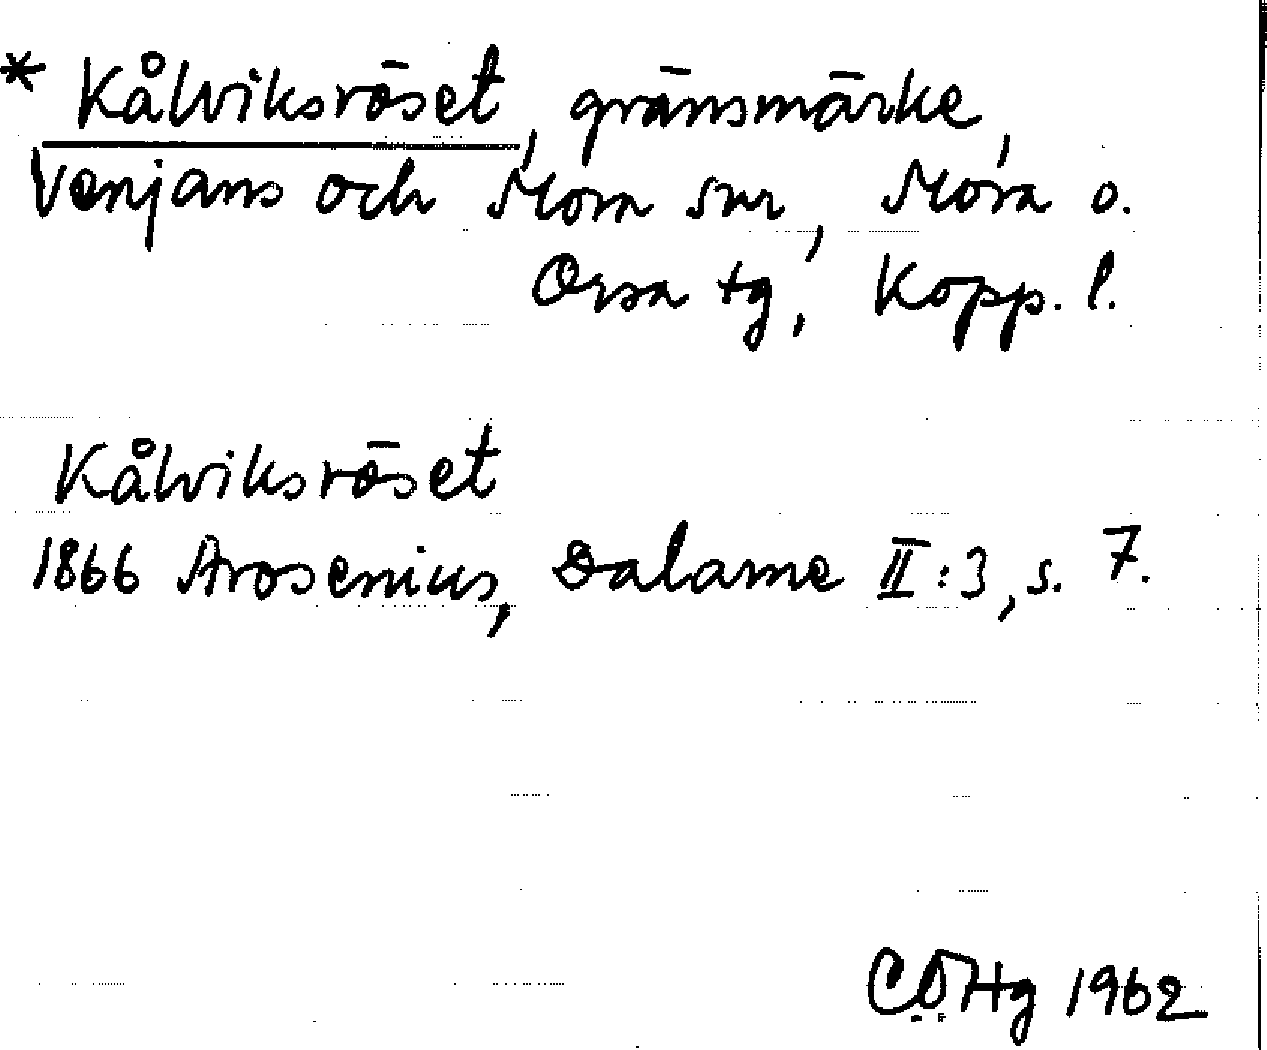 * Kålviksröset, gränsmärke,
Venjans och Mora snr, Mora o.
Orsa tg, Kopp. l.
Kålviksröset
1866 Arosenius, Dalarne II:3, s. 7.
CÖHg 1962